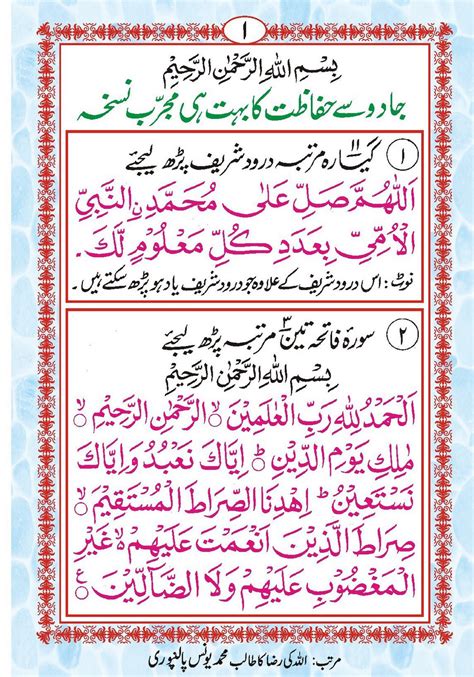 ۱
بِسْمِ اللهِ الرَّحْمٰنِ الرَّحِيْمِ
جادو سے حفاظت کا بہت ہی مجرّب نسخہ
۱ گیارہ ۱۱ مرتبہ درود شریف پڑھ لیجئے
اَللّٰهُمَّ صَلِّ عَلٰى مُحَمَّدِنِ النَّبِيِّ
الْاُمِّيِّ بِعَدَدِ كُلِّ مَعْلُوْمٍ لَّكَ۔
نوٹ: اس درود شریف کے علاوہ جو درود شریف یاد ہو پڑھ سکتے ہیں۔
۲ سورۂ فاتحہ تین ۳ مرتبہ پڑھ لیجئے
بِسْمِ اللهِ الرَّحْمٰنِ الرَّحِيْمِ
اَلْحَمْدُ لِلّٰهِ رَبِّ الْعٰلَمِيْنَ ۙ الرَّحْمٰنِ الرَّحِيْمِ ۙ
مٰلِكِ يَوْمِ الدِّيْنِ ؕ اِيَّاكَ نَعْبُدُ وَاِيَّاكَ
نَسْتَعِيْنُ ؕ اِهْدِنَا الصِّرَاطَ الْمُسْتَقِيْمَ ۙ
صِرَاطَ الَّذِيْنَ اَنْعَمْتَ عَلَيْهِمْ ۙ غَيْرِ
الْمَغْضُوْبِ عَلَيْهِمْ وَلَا الضَّآلِّيْنَ ع
مرتب: اللہ کی رضا کا طالب محمد یونس پالنپوری